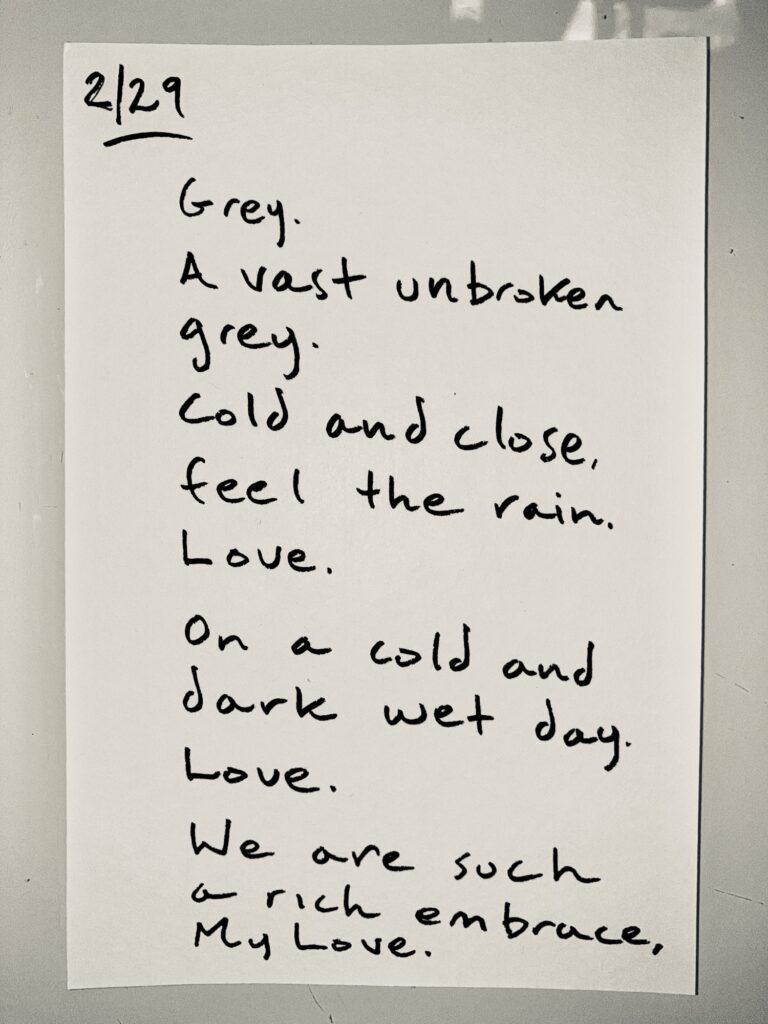 2/29
Grey.
A vast unbroken
grey.
Cold and close,
feel the rain.
Love.
On a cold and
dark wet day.
Love.
We are such
a rich embrace,
My Love.